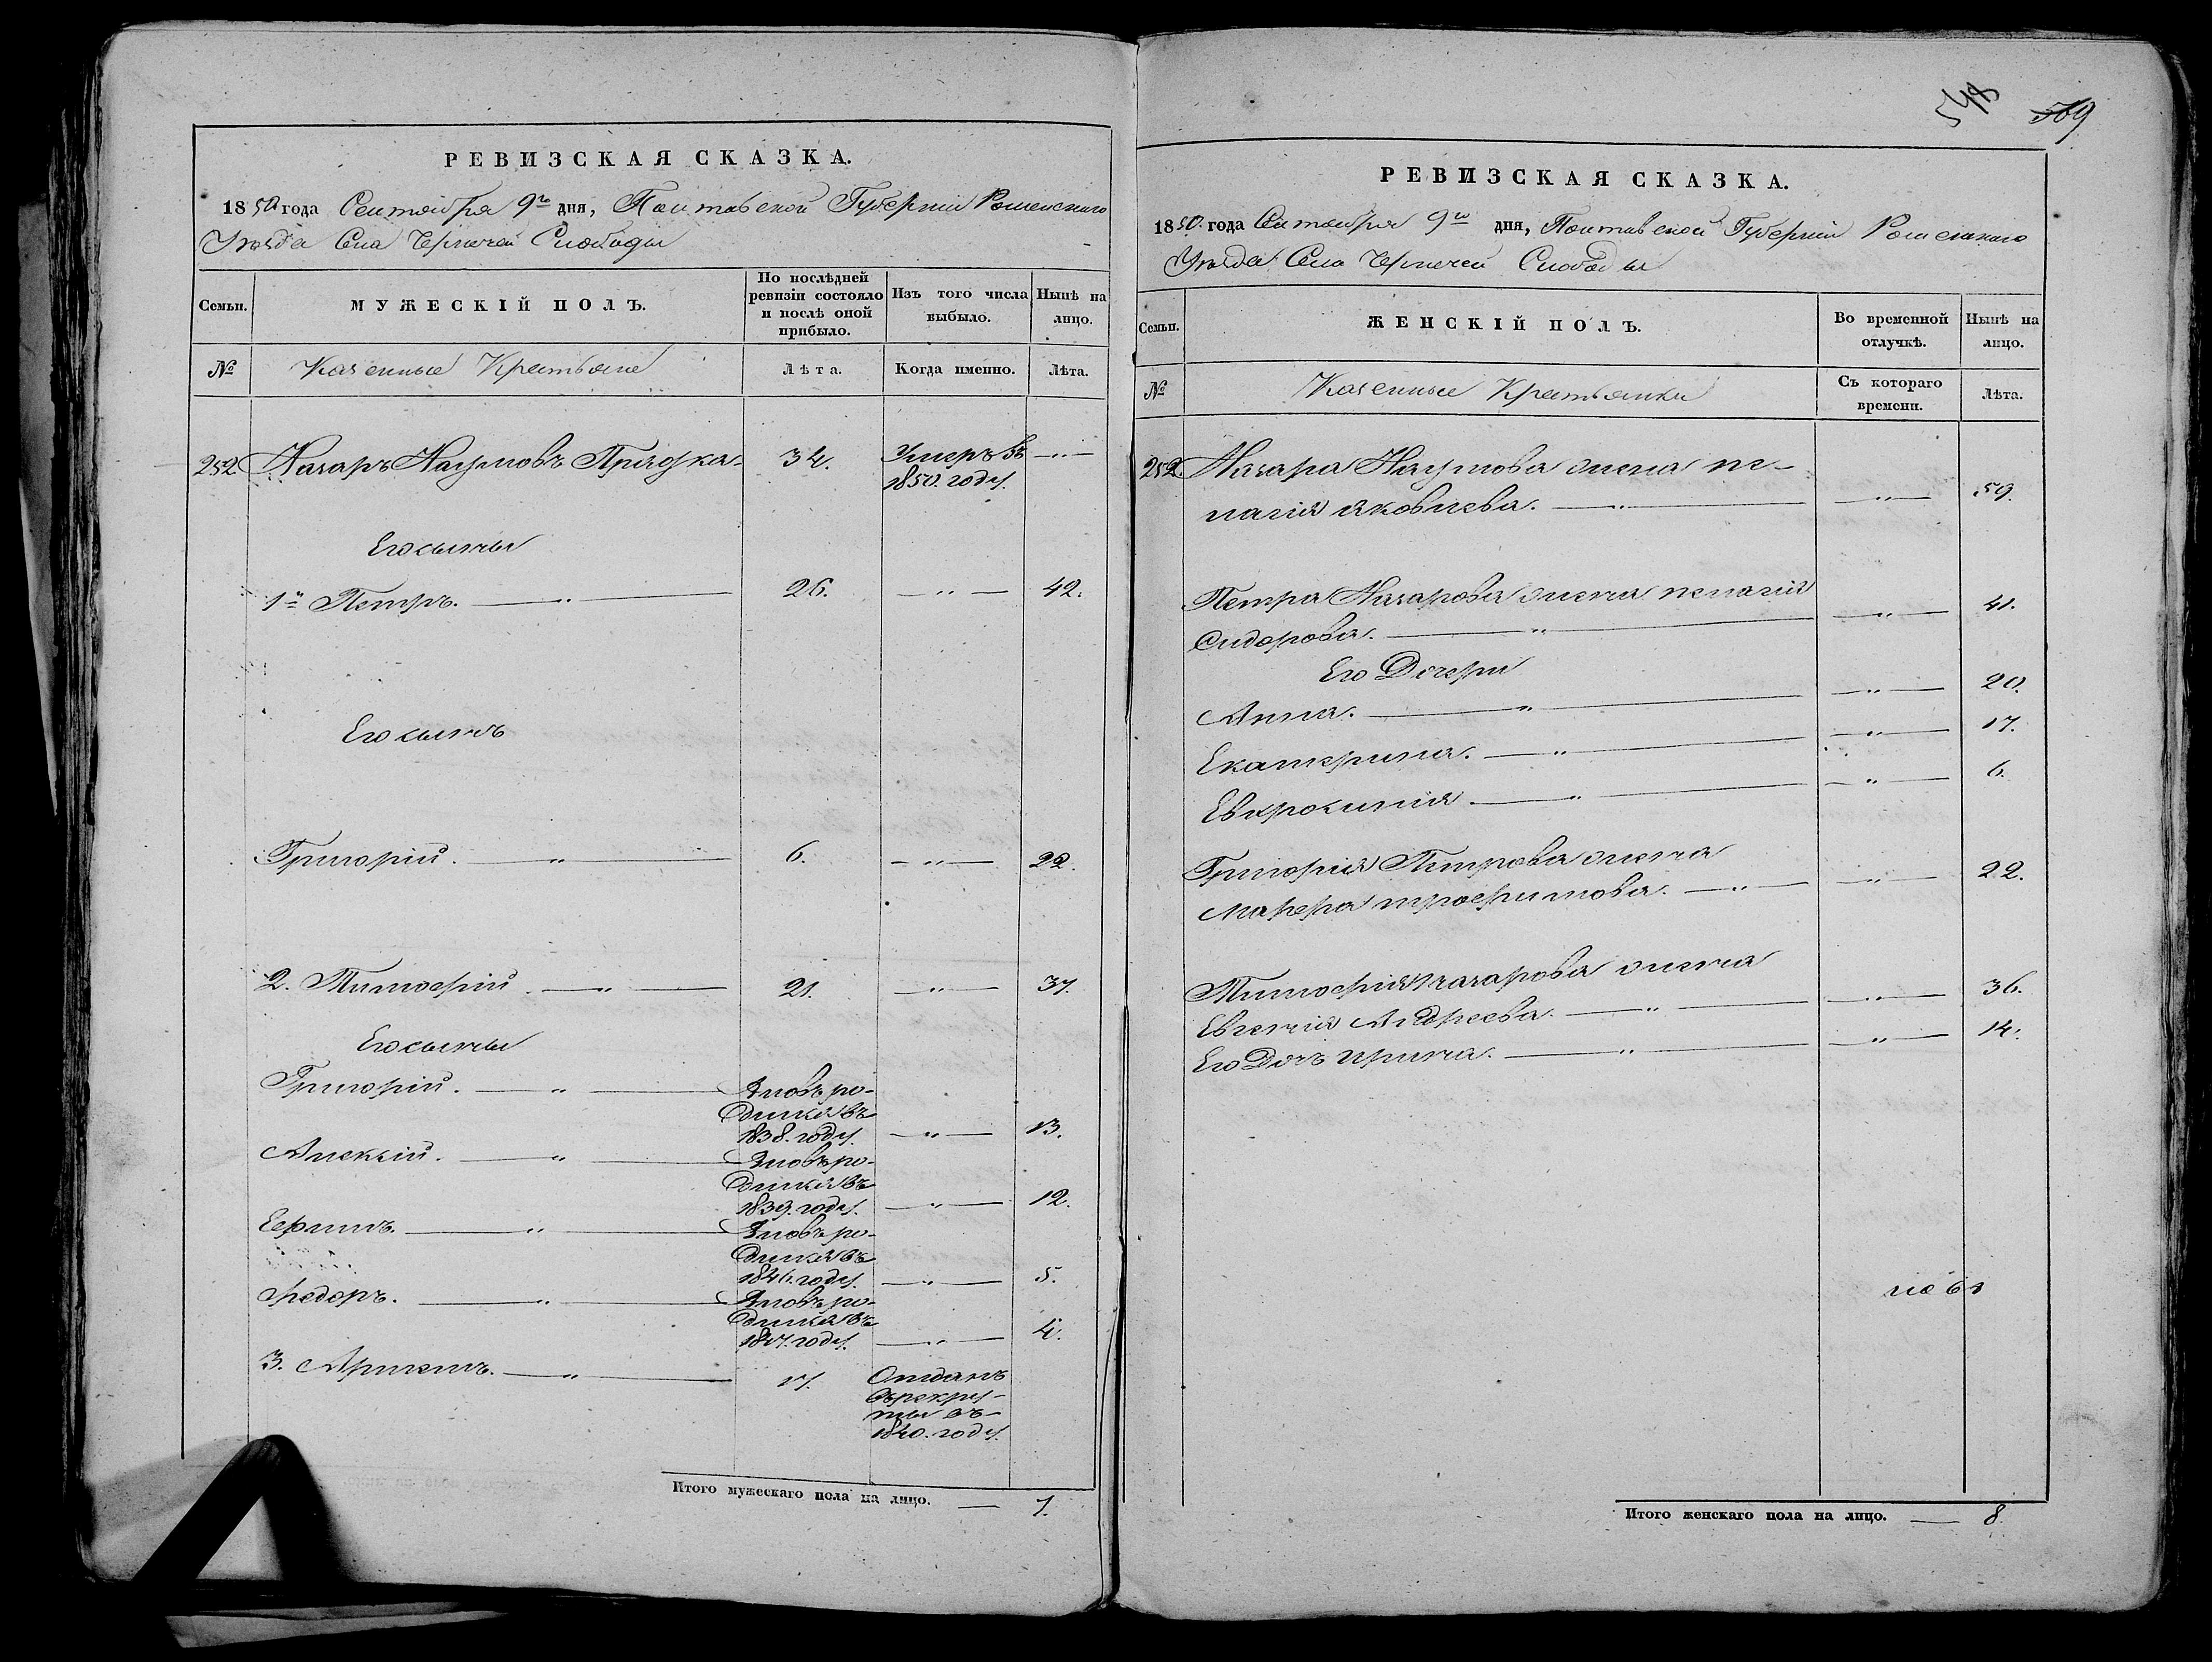 РЕВИЗСКАЯ СКАЗКА.
1850 года Сентября 9го дня, Полтавской Губерніи Роменскаго
Уезда Села Чернечей Слободы
Семьи.
МУЖЕСКІЙ ПОЛЪ.
По послѣдней ревизіи состояло и послѣ оной прибыло.
Изъ того числа выбыло.
Нынѣ на лицо.
№
Казенные Крестьяне
Лѣта.
Когда именно.
Лѣта.
252 Назаръ Наумовъ Прядка 34. Умеръ въ — „ —
1850. году.
Его сыны
1й Петръ. — „ — 26. — „ — 42.
Его сынъ
Григорій. — „ — 6. — „ — 22.
2. Тимофій. — „ — 21. — „ — 37.
Его сыны
Григорій. — „ — Вновь ро-
дился въ
1838. году. — „ — 13.
Алексій. — „ — Вновь ро-
дился въ
1839. году. — „ — 12.
Ефимъ. — „ — Вновь ро-
дился въ
1846. году. — „ — 5.
Федоръ. — „ — Вновь ро-
дился въ
1847. году. — „ — 4.
3. Артемъ. — „ — 17. Отданъ
въ рекру-
ты въ
1840. году.
Итого мужескаго пола на лицо. — 7.
548 569
РЕВИЗСКАЯ СКАЗКА.
1850. года Сентября 9го дня, Полтавской Губерніи Роменскаго
Уезда Села Чернечей Слободы
Семьи.
ЖЕНСКІЙ ПОЛЪ.
Во временной отлучкѣ.
Нынѣ на лицо.
№
Казенные Крестьянки
Съ котораго времени.
Лѣта.
252. Назара Наумова жена пе-
лагія яковлева. — „ — — „ — 59.
Петра Назарова жена пелагія
Сидорова. — „ — — „ — 41.
Его Дочери
Анна. — „ — — „ — 20.
Екатерина. — „ — — „ — 17.
Евфросинія — „ — — „ — 6.
Григорія Петрова жена
Марфа трофимова. — „ — — „ — 22.
Тимофія назарова жена
Евгенія Андреева. — „ — — „ — 36.
Его Дочь ирина. — „ — — „ — 14.
Итого женскаго пола на лицо. — 8.